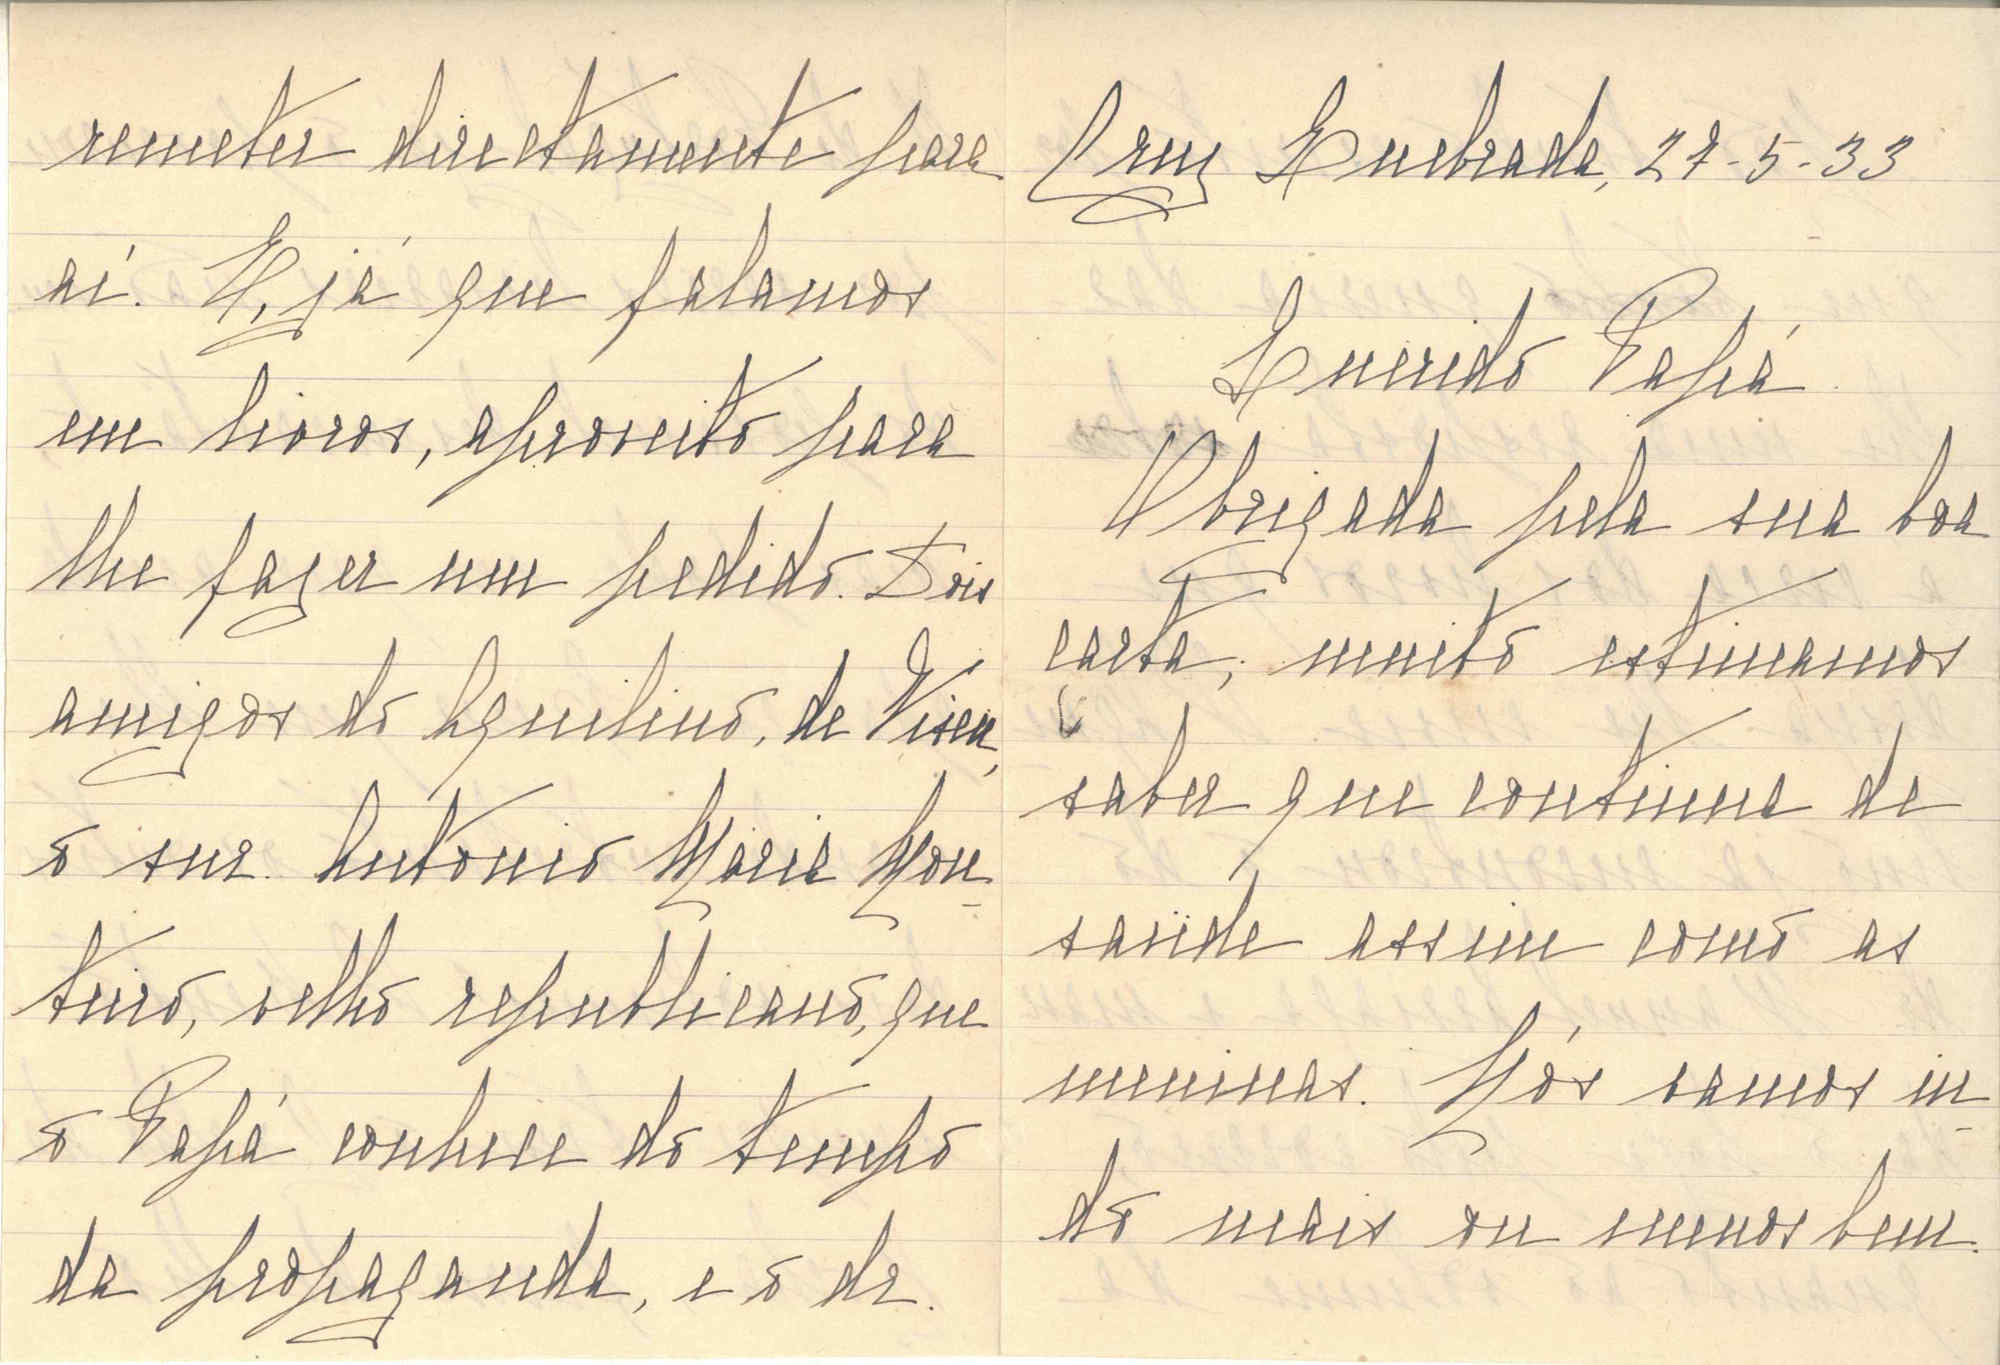 Cruz Quebrada, 27-5-33
Querido Papá
Obrigada pela sua boa
carta; muito estimamos
saber que continua de
saúde assim como as
meninas. Nós vamos in-
do mais ou menos bem.
remeter directamente para
aí. E, já que falamos
em livros, aproveito para
lhe fazer um pedido. Dois
amigos do Aquilino, de Viseu,
o snr. Antonio Maria Mon-
teiro, velho republicano, que
o Papá conhece do tempo
da propaganda, e o dr.